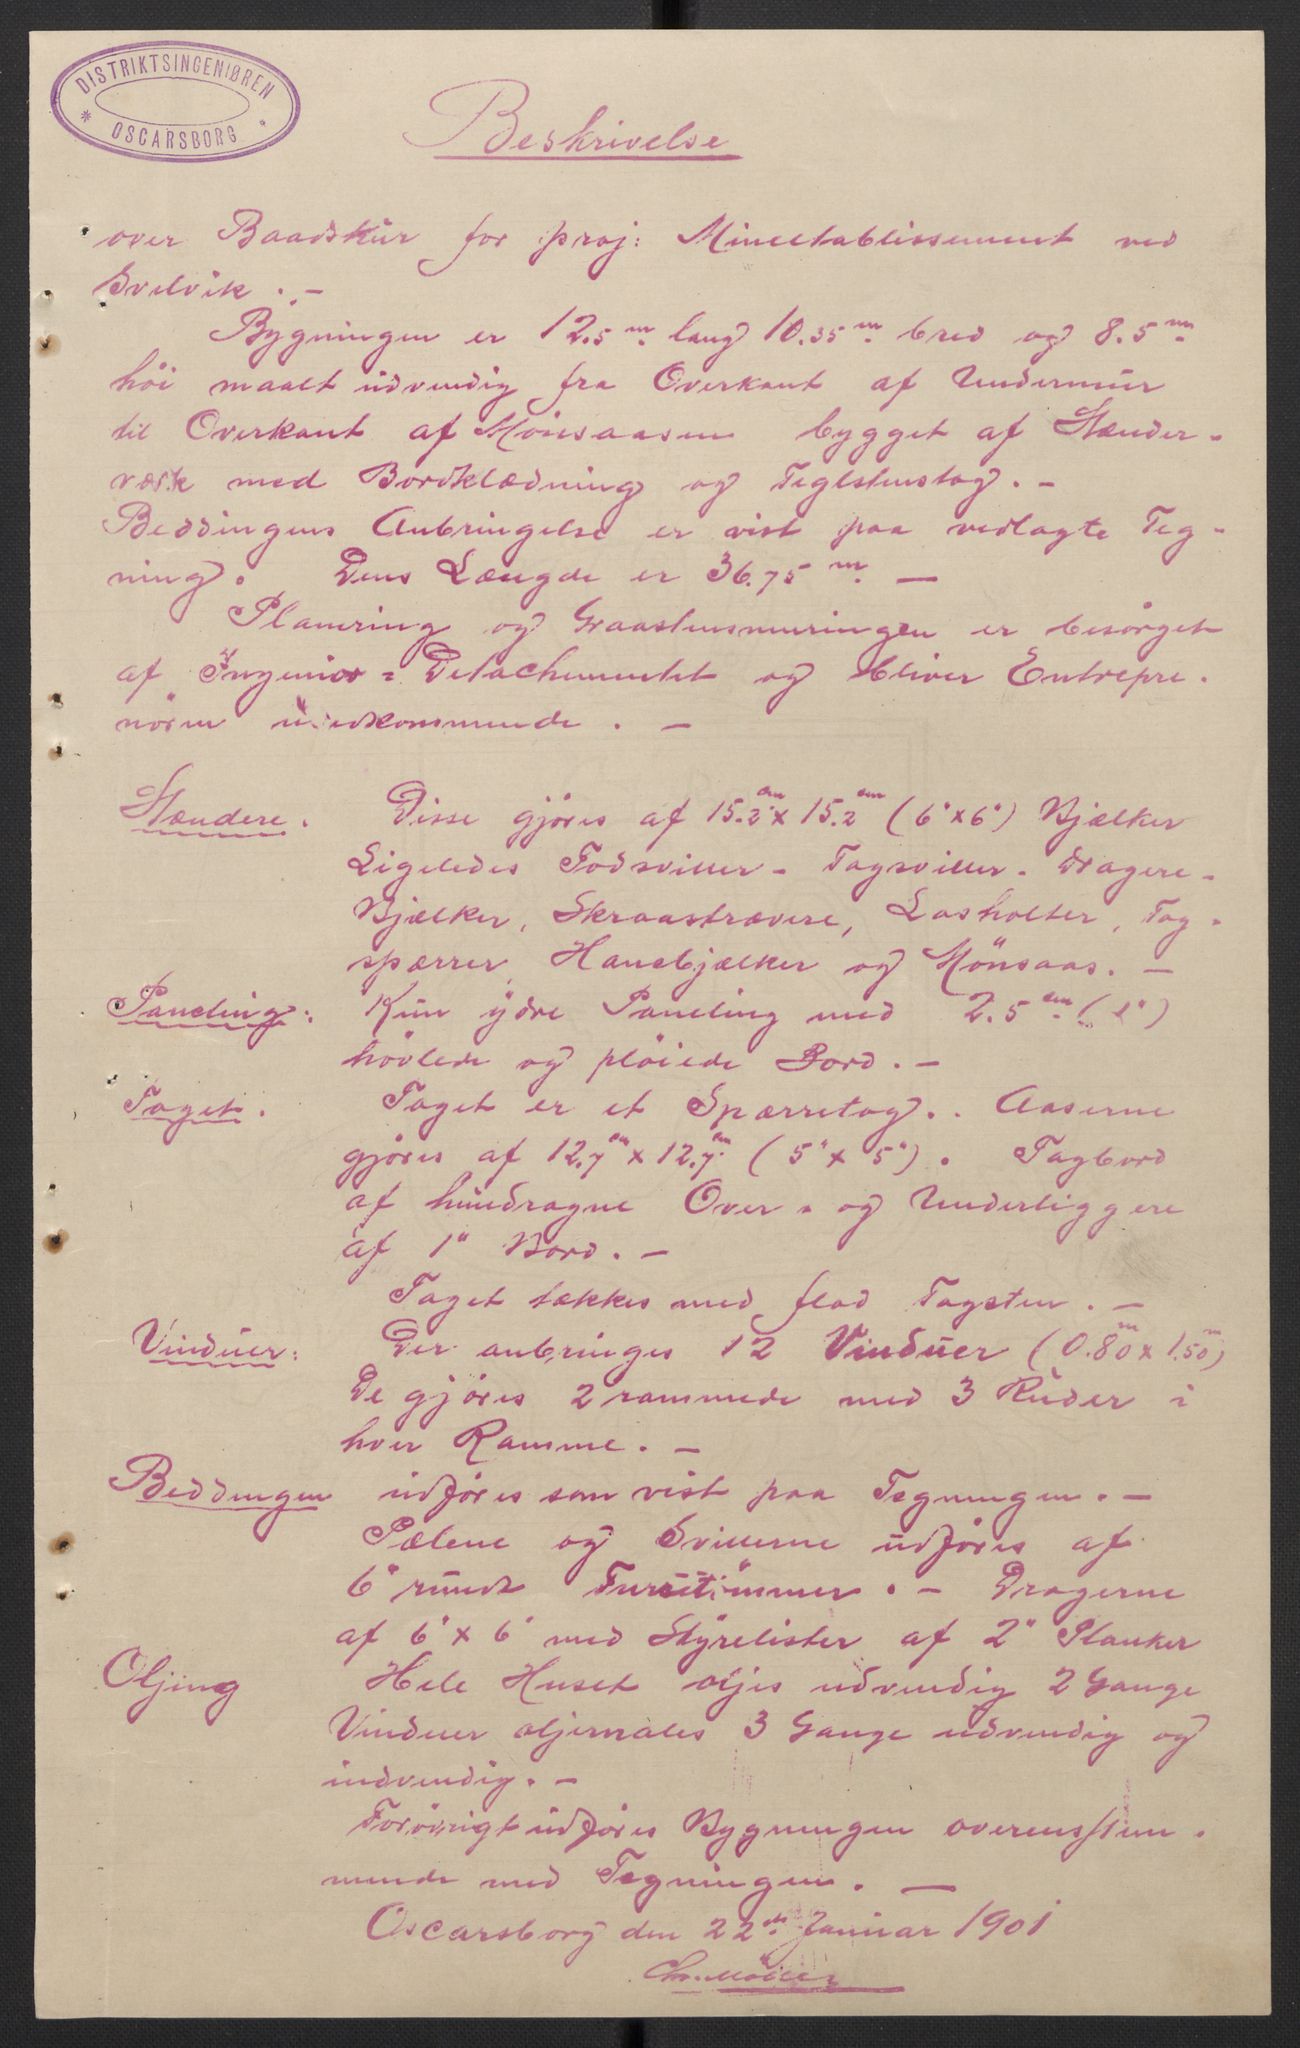 DISTRIKTSINGENIØREN
OSCARSBORG
Beskrivelse
over Baadskur for proj: Mineetablissement ved
Svelvik. -
Bygningen er 12.5 m. lang 10.35 m. bred og 8.5 m.
höi maalt udvendig fra Overkant af Undermur
til Overkant af Mönsaasen bygget af Stænder-
værk med Bordklædning og Teglstenstag. -
Beddingens Anbringelse er vist paa vedlagte Teg-
ning. Dens Længde er 36.75 m. —
Planering og Graastensmuringen er besörget
af Ingeniör = Detachementet og bliver Entrepre-
nören uvedkommende. -
Stændere. Disse gjöres af 15.2 cm x 15.2 cm (6" x 6") Bjælker
Ligeledes Fodsviller - Tagsviller - Dragere -
Bjælker, Skraastrævere, Losholter, Tag-
spærrer, Hanebjælker og Mönsaas. -
Paneling: Kun ydre Paneling med 2.5 cm. (1")
hövlede og plöiede Bord. -
Taget. Taget er et Spærretag. . Aaserne
gjöres af 12.7 cm x 12.7 cm (5" x 5"). Tagbord
af hundragne Over- og Underliggere
af 1" Bord. -
Taget tækkes med flad Tagsten. -
Vinduer: Der anbringes 12 Vinduer (0.80 m x 1.50 m)
De gjöres 2 rammede med 3 Ruder i
hver Ramme. -
Beddingen udföres som vist paa Tegningen. -
Pælene og Svillerne udföres af
6" rundt Furutömmer. - Dragerne
af 6" x 6" med Styrelister af 2" Planker
Oljing Hele Huset oljes udvendig 2 Gange
Vinduer oljemales 3 Gange udvendig og
indvendig. -
Forövrigt udföres Bygningen overensstem-
mende med Tegningen. —
Oscarsborg den 22de Januar 1901
Chr. Möller